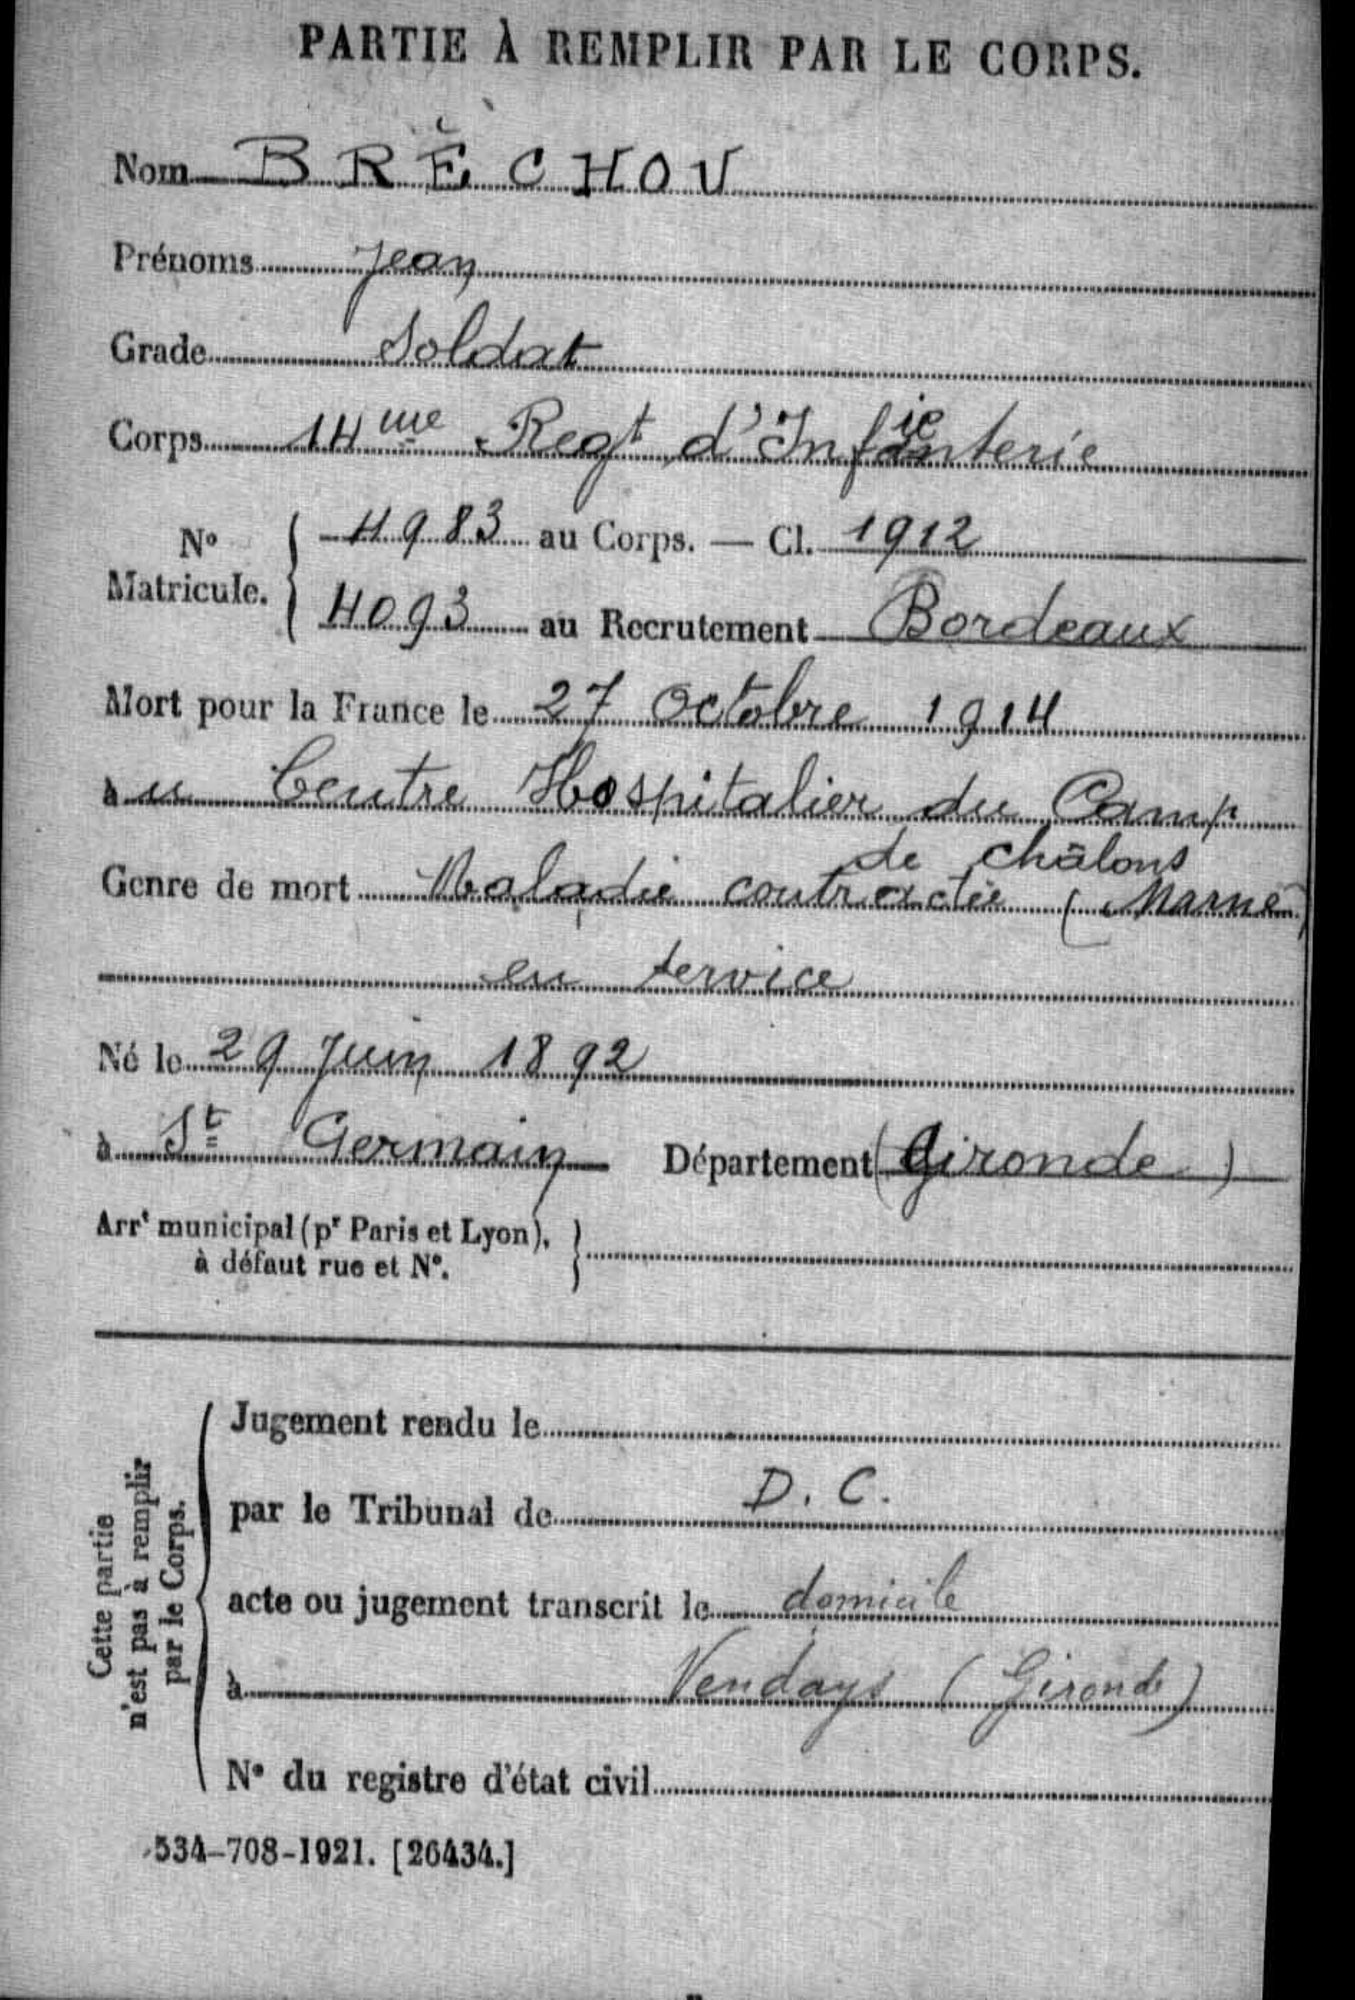 PARTIE À REMPLIR PAR LE CORPS.
Nom BRÉCHOU
Prénoms Jean
Grade Soldat
Corps 14 me Regt d'Infanterie
ie
N° Matricule. { 4983 au Corps. — Cl. 1912
4093 au Recrutement Bordeaux
Mort pour la France le 27 Octobre 1914
à u Centre Hospitalier du Camp
de Châlons
Genre de mort Maladie contractée (Marne)
en service
Né le 29 Juin 1892
à St Germain Département (Gironde)
Arrt municipal (pr Paris et Lyon), }
à défaut rue et N°.
Cette partie
n'est pas à remplir
par le Corps.
Jugement rendu le
par le Tribunal de D. C.
acte ou jugement transcrit le domicile
à Vendays (Gironde)
N° du registre d'état civil
534-708-1921. [26434.]